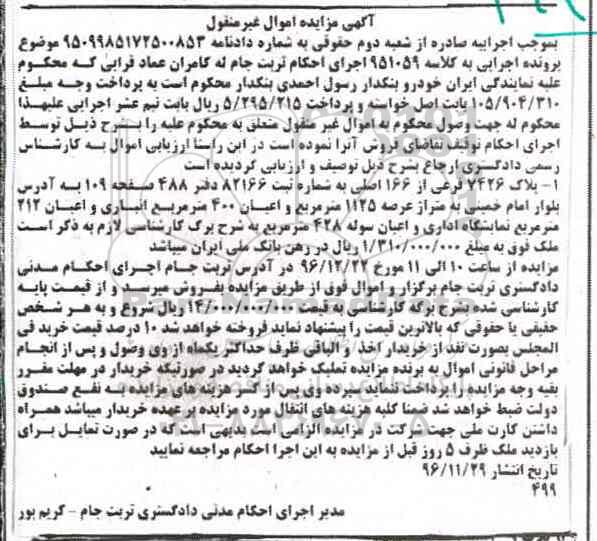 آگهی مزایده اموال غیرمنقول
بموجب اجرائیه صادره از شعبه دوم حقوقی به شماره دادنامه ۹۵۰۹۹۸۵۱۷۲۵۰۰۸۵۳ موضوع
پرونده اجرایی به کلاسه ۹۵۱۰۵۹ اجرای احکام تربت جام له کامران عماد قرایی که محکوم
علیه نمایندگی ایران خودرو بنکدار رسول احمدی بنکدار محکوم است به پرداخت وجه مبلغ
۱۰۵/۹۰۴/۳۱۰ بابت اصل خواسته و پرداخت ۵/۲۹۵/۲۱۵ ریال بابت نیم عشر اجرایی علیهذا
محکوم له جهت وصول محکوم به اموال غیر منقول متعلق به محکوم علیه را بشرح ذیل توسط
اجرای احکام توقیف تقاضای فروش آنرا نموده است در این راستا ارزیابی اموال به کارشناس
رسمی دادگستری ارجاع بشرح ذیل توصیف و ارزیابی گردیده است
۱- پلاک ۷۴۲۶ فرعی از ۱۶۶ اصلی به شماره ثبت ۸۲۱۶۶ دفتر ۴۸۸ صفحه ۱۰۹ به آدرس
بلوار امام خمینی به متراژ عرصه ۱۱۲۵ مترمربع و اعیان ۴۰۰ مترمربع انباری و اعیان ۲۱۲
مترمربع نمایشگاه اداری و اعیان سوله ۴۲۸ مترمربع به شرح برگ کارشناسی لازم به ذکر است
ملک فوق به مبلغ ۱/۳۱۰/۰۰۰/۰۰۰ ریال در رهن بانک ملی ایران میباشد
مزایده از ساعت ۱۰ الی ۱۱ مورخ ۹۶/۱۲/۲۲ در آدرس تربت جام اجرای احکام مدنی
دادگستری تربت جام برگزار و اموال فوق از طریق مزایده بفروش میرسد و از قیمت پایه
کارشناسی شده بشرح برگه کارشناسی به قیمت ۱۴/۰۰۰/۰۰۰/۰۰۰ ریال شروع و به هر شخص
حقیقی یا حقوقی که بالاترین قیمت را پیشنهاد نماید فروخته خواهد شد ۱۰ درصد قیمت خرید فی
المجلس بصورت نقد از خریدار اخذ و الباقی ظرف حداکثر یکماه از وی وصول و پس از انجام
مراحل قانونی اموال به برنده مزایده تملیک خواهد گردید در صورتیکه خریدار در مهلت مقرر
بقیه وجه مزایده را پرداخت ننماید سپرده وی پس از کسر هزینه های مزایده به نفع صندوق
دولت ضبط خواهد شد ضمنا کلیه هزینه های انتقال مورد مزایده بر عهده خریدار میباشد همراه
داشتن کارت ملی جهت شرکت در مزایده الزامی است بدیهی است که در صورت تمایل برای
بازدید ملک ظرف ۵ روز قبل از مزایده به این اجرا احکام مراجعه نمایید
تاریخ انتشار ۹۶/۱۱/۲۹
۴۹۹
مدیر اجرای احکام مدنی دادگستری تربت جام - کریم پور